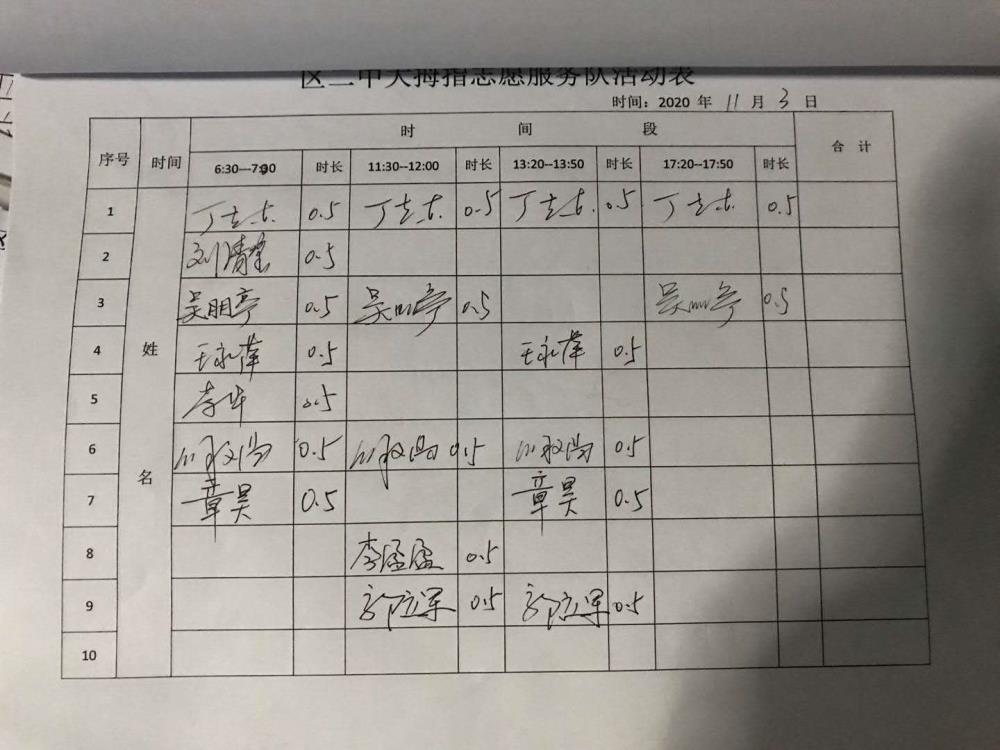 区二中大拇指志愿服务队活动表
时间：2020 年 11 月 3 日
序号 时间 时 间 段 合 计
6:30—7:00 时长 11:30--12:00 时长 13:20--13:50 时长 17:20--17:50 时长
姓 名
1 丁志杰 0.5 丁志杰 0.5 丁志杰 0.5 丁志杰 0.5
2 刘清 0.5
3 吴明亭 0.5 吴明亭 0.5 吴明亭 0.5
4 王永萍 0.5 王永萍 0.5
5 李华 0.5
6 0.5 0.5 0.5
7 章昊 0.5 章昊 0.5
8 李孟孟 0.5
9 郭应军 0.5 郭应军 0.5
10